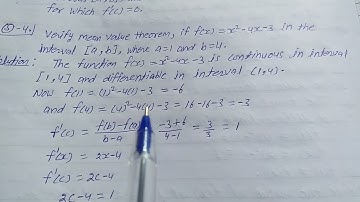 for which f(c)=0.
(5)-4. Verify mean value theorem, if f(x)=x²-4x-3 in the
interval [a,b], where a=1 and b=4.
Solution: The function f(x)=x²-4x-3 is continuous in interval
[1,4] and differentiable in interval (1,4).
Now f(1)=(1)²-4(1)-3=-6
and f(4)=(4)²-4(4)-3=16-16-3=-3
f'(c)=f(b)-f(a)/b-a=-3+6/4-1=3/3=1
f'(x)=2x-4
f'(c)=2c-4
2c-4=1